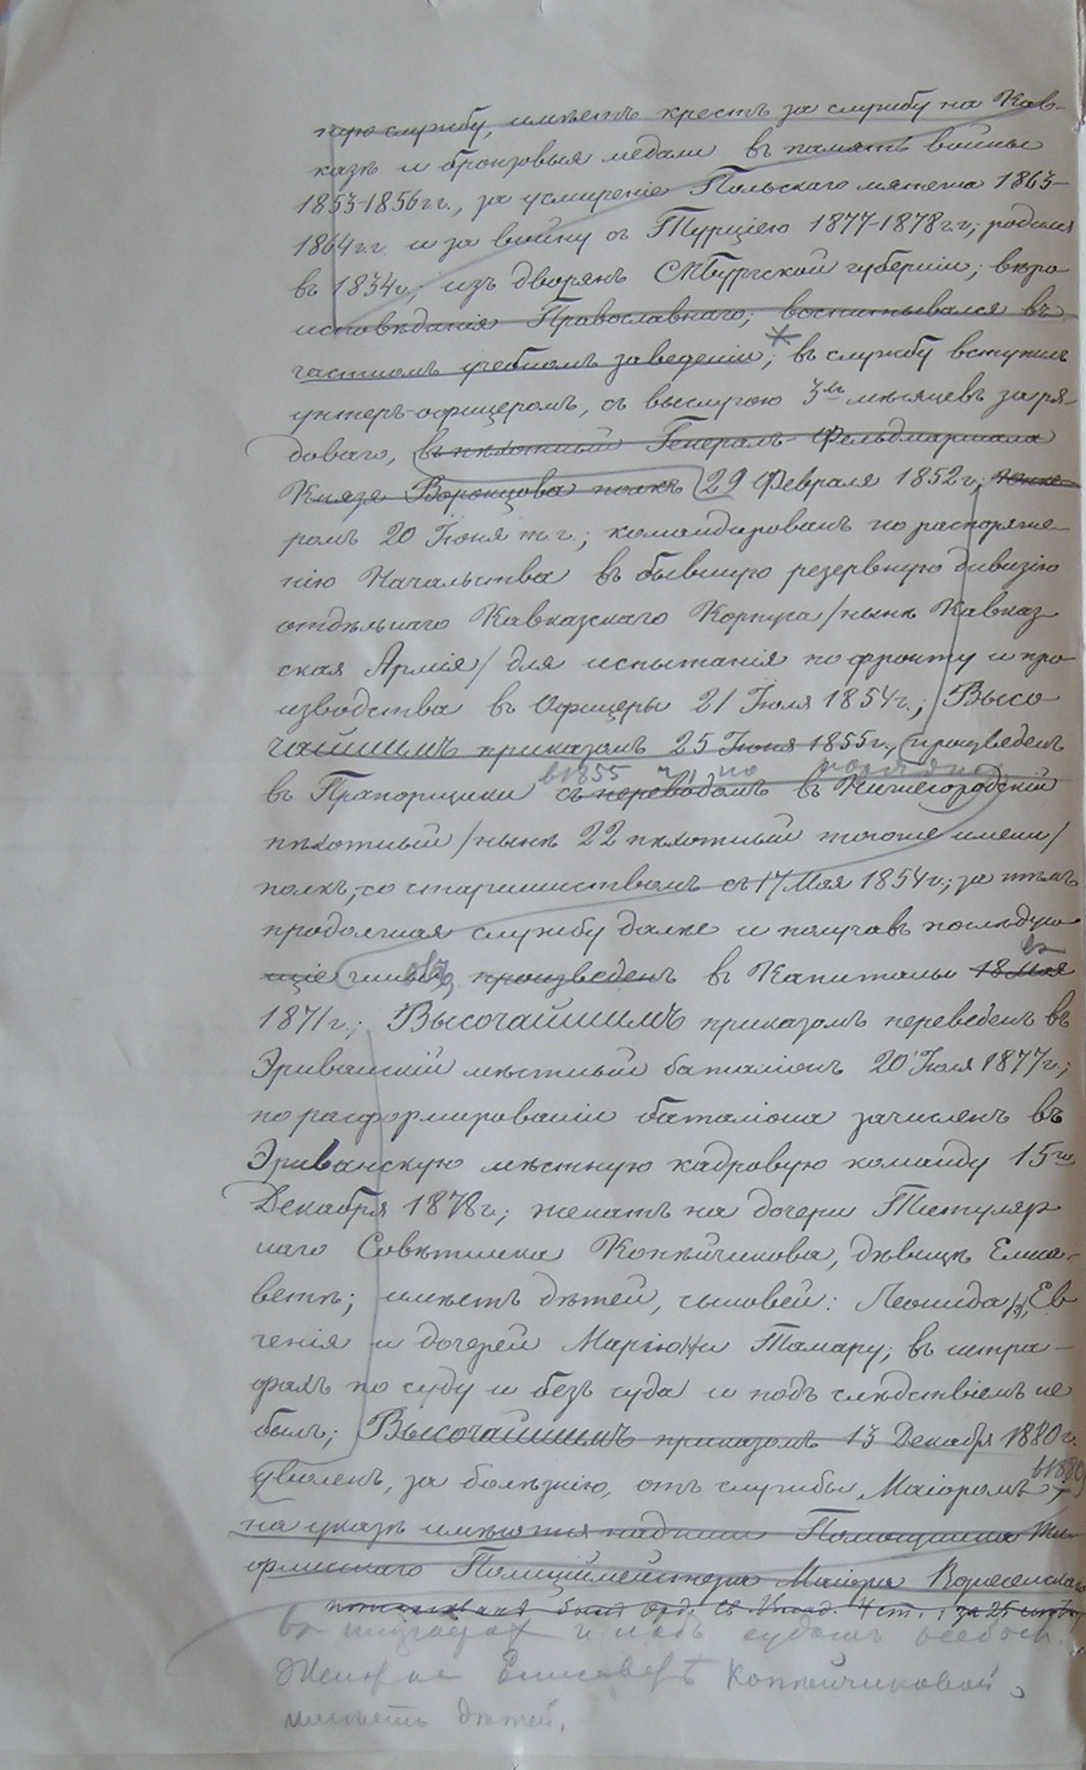 ную службу, имѣетъ крестъ за службу на Кав-
казѣ и бронзовыя медали въ память войны
1853-1856 г.г., за усмиреніе Польскаго мятежа 1863-
1864 г.г. и за войну съ Турціею 1877-1878 г.г.; родился
въ 1834 г., изъ дворянъ СПбургской губерніи; вѣро
исповѣданія Православнаго; воспитывался въ
частномъ учебномъ заведеніи; въ службу вступилъ
унтеръ-офицеромъ, съ выслугою 3хъ мѣсяцевъ за ря-
доваго, въ пѣхотный Генералъ-Фельдмаршала
Князя Воронцова полкъ 29 Февраля 1852 г.; юнке-
ромъ 20 Іюня т. г.; командированъ по распоряже-
нію Начальства въ бывшую резервную дивизію
отдѣльнаго Кавказскаго Корпуса /нынѣ Кавказ
ская Армія/ для испытанія по фронту и про
изводства въ Офицеры 21 Іюля 1854 г.; Высо
чайшимъ приказомъ 25 Іюня 1855 г., произведенъ
в 1855 г. по
въ Прапорщики съ переводомъ въ Нижегородскій
пѣхотный /нынѣ 22 пѣхотный тогоже имени/
полкъ, со старшинствомъ съ 17 Мая 1854 г.; за тѣмъ
продолжая службу далѣе и получивъ послѣдую
щіе чины, произведенъ въ Капитаны 18 Мая
1871 г.; Высочайшимъ приказомъ переведенъ въ
Эриванскій мѣстный баталіонъ 20 Іюля 1877 г.;
по расформированіи баталіона зачисленъ въ
Эриванскую мѣстную кадровую команду 15го
Декабря 1878 г.; женатъ на дочери Титуляр
наго Совѣтника Копѣйчикова, дѣвицѣ Елиса-
ветѣ; имѣетъ дѣтей, сыновей: Леонида, Ев
генія и дочерей Марію и Тамару; въ штра-
фахъ по суду и безъ суда и подъ слѣдствіемъ не
былъ; Высочайшимъ приказомъ 13 Декабря 1880 г.
уволенъ, за болѣзнію, отъ службы, Маіоромъ; в 1880
на указѣ имѣются надписи Помощника Ти-
флисскаго Полиціймейстера Маіора
Орд. Св. Влад. 4 ст., за 25 лѣтъ
въ штрафах и подъ судомъ не
Женат на Елисаветѣ Копѣйчиковой,
имѣетъ дѣтей.